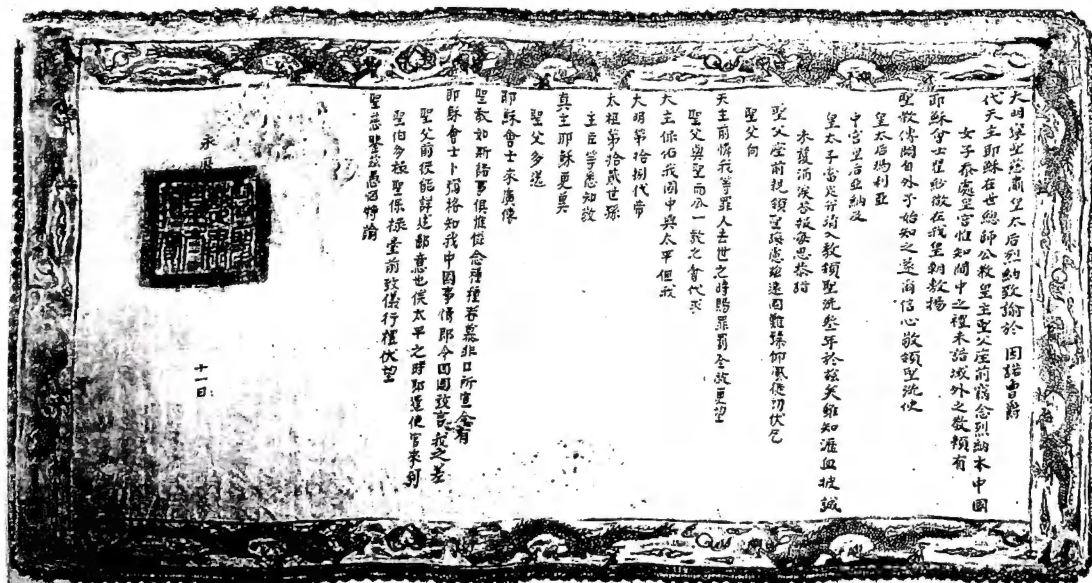 大明寧聖慈肅皇太后烈納致諭於 因諾曾爵
代天主耶穌在世總師公教皇主聖父座前竊念烈納本中國
女子忝處皇宮惟知閫中之禮未諳域外之教賴有
耶穌會士瞿紗微在我皇朝敷揚
聖教傳聞自外予始知之遂爾信心敬領聖洗使
皇太后瑪利亞
中宮皇后亞納及
皇太子當定並請入教領聖洗叁年於茲矣雖知瀝血披誠
未獲涓涘答報每思恭詣
聖父座前親領聖誨慮茲遠國難臻仰風徒切伏乞
聖父向
天主前憐我等罪人去世之時賜罪罰全赦更望
聖父與聖而公一教之會代求
天主保佑我國中興太平俾我
大明第拾捌代帝
太祖第拾貳世孫
主臣等悉知敬
真主耶穌更冀
聖父多遣
耶穌會士來廣傳
聖教如斯諸事俱維憐念種種眷慕非口所宣今有
耶穌會士卜彌格知我中國事情即令回國致言我之差
聖父前彼能詳述鄙意也俟太平之時即遣使官來到
聖伯多祿聖保祿臺前致儀行禮伏望
聖慈鑒茲愚悃特諭
永曆
十一日